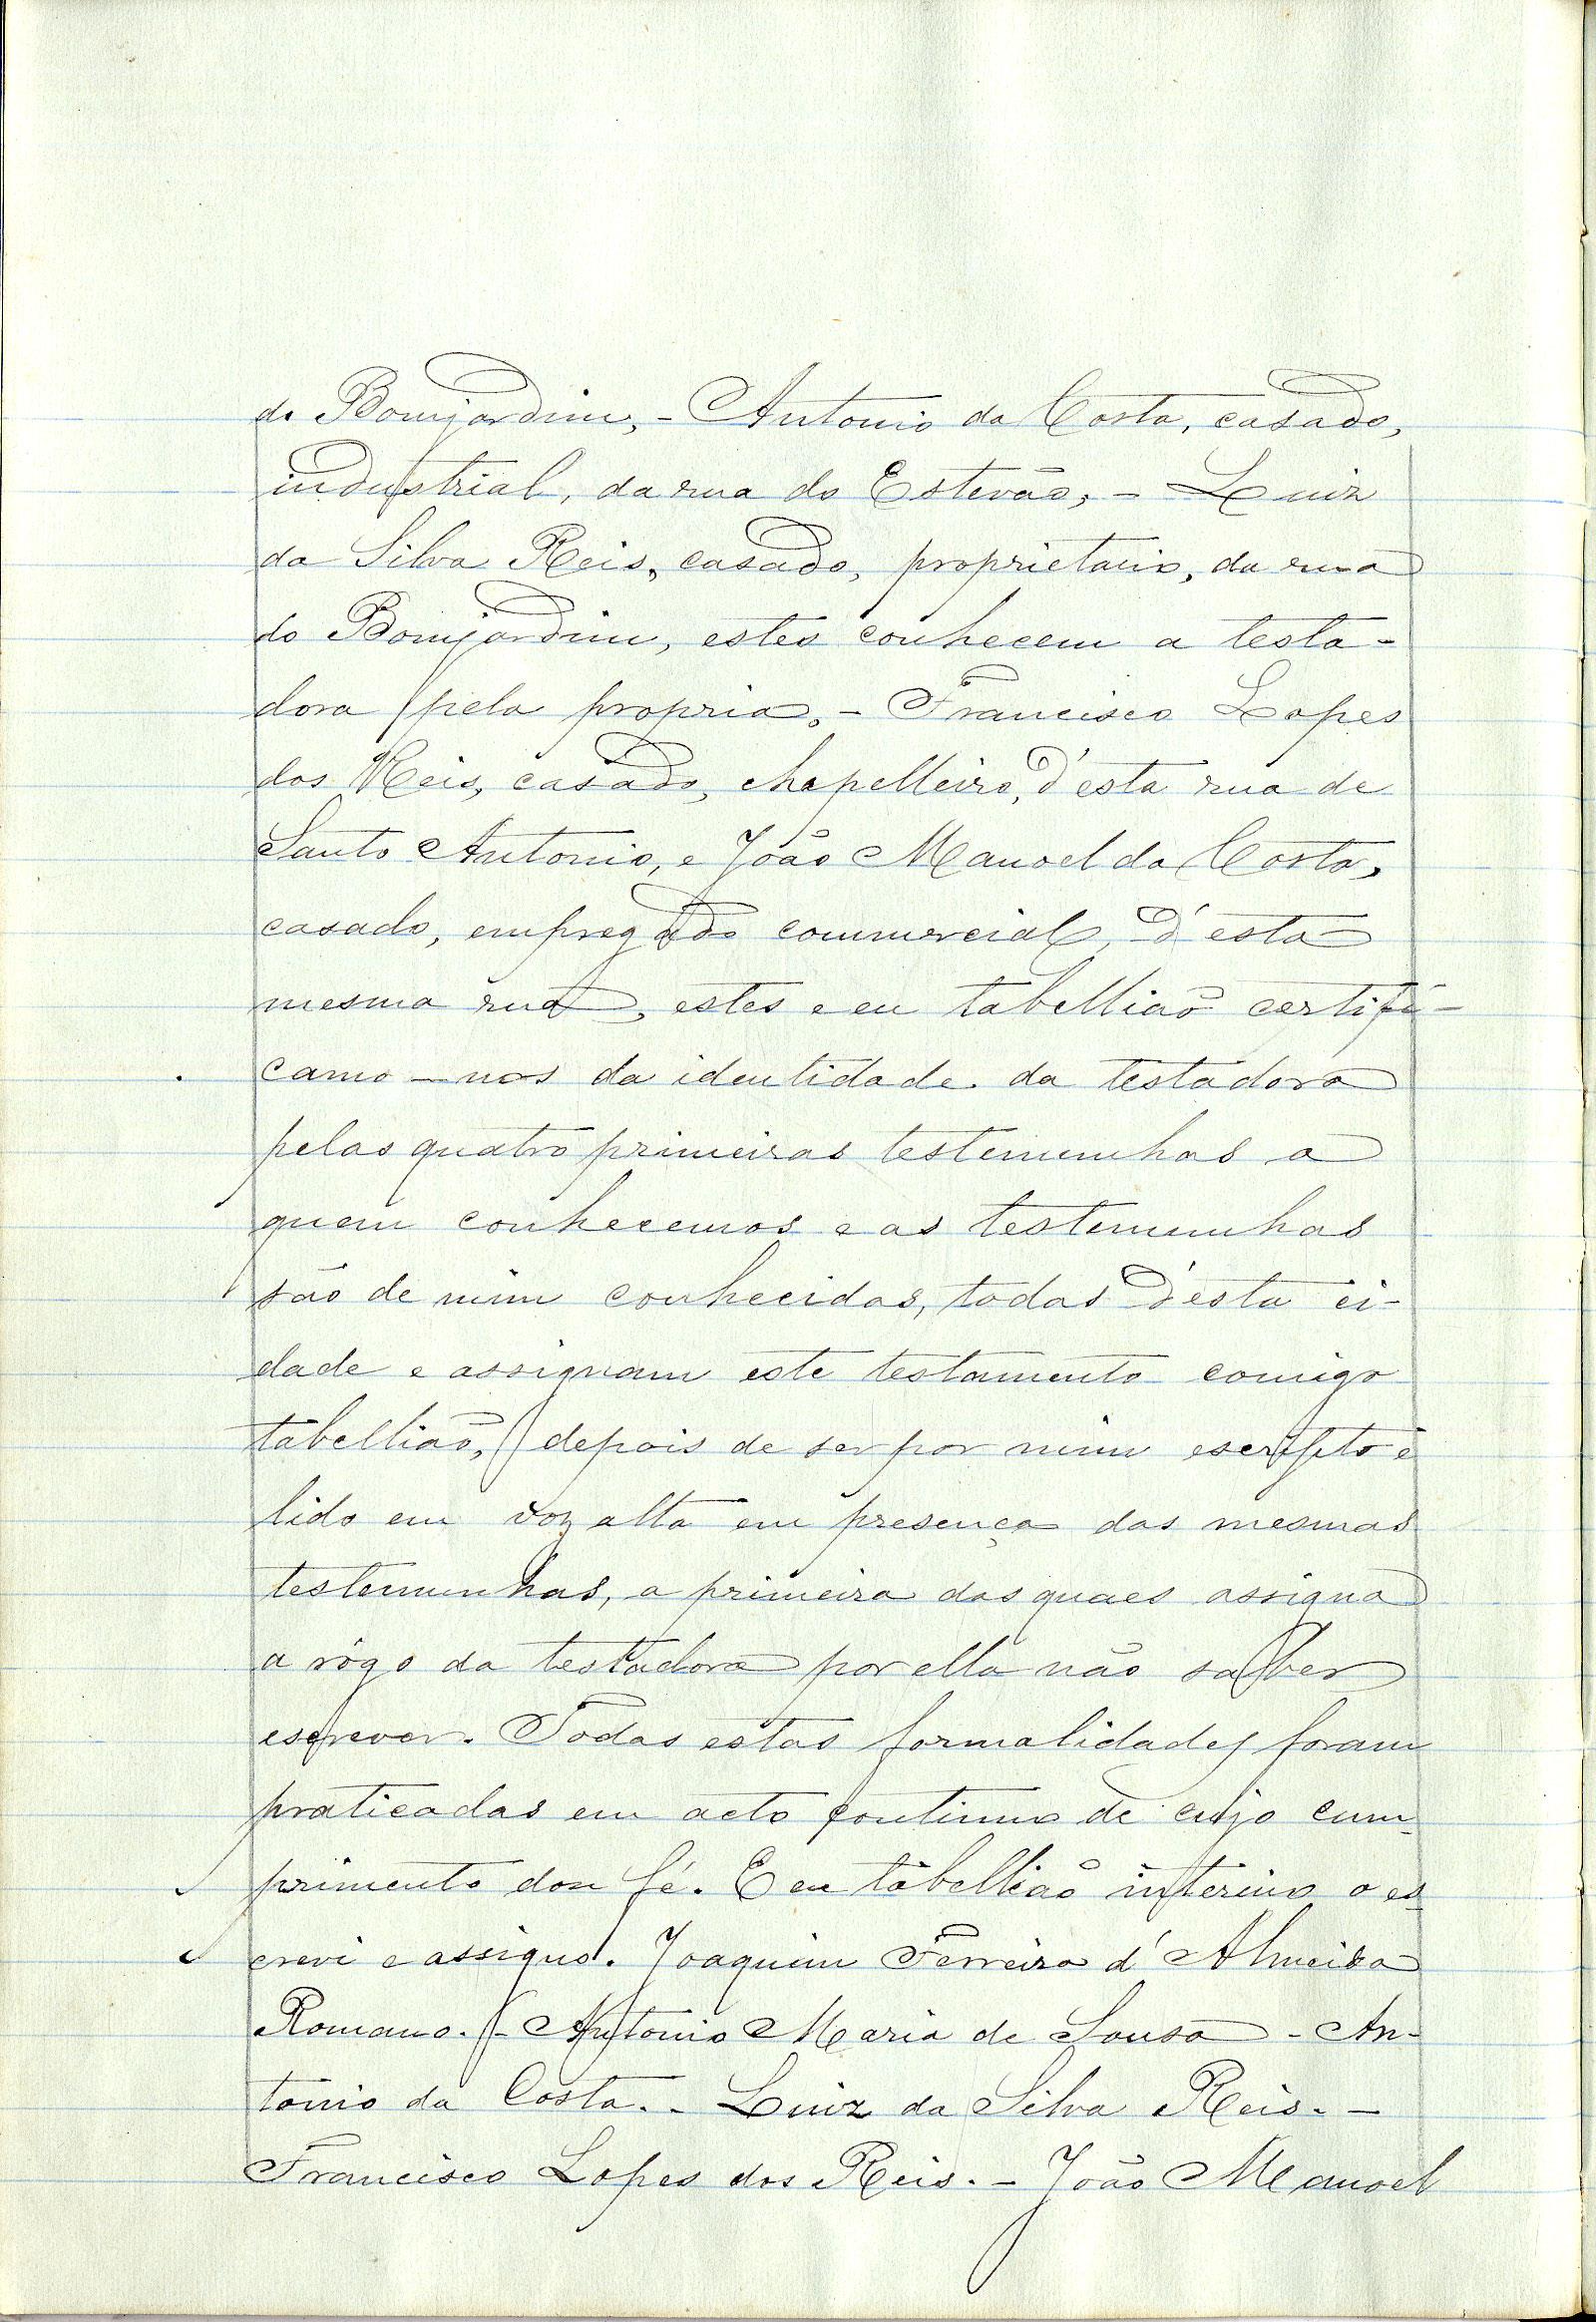 do Bomjardim,- Antonio da Costa, casado,
industrial, da rua do Estevão,- Luiz
da Silva Reis, casado, proprietario, da rua
do Bomjardim, estes conhecem a testa-
dora pela propria.- Francisco Lopes
dos Reis, casado, chapelleiro, d'esta rua de
Santo Antonio, e João Manoel da Costa,
casado, empregado commercial, d'esta
mesma rua, estes e eu tabellião certifi-
camo-nos da identidade da testadora
pelas quatro primeiras testemunhas a
quem conhecemos e as testemunhas
são de mim conhecidas, todas d'esta ci-
dade e assignam este testamento comigo
tabellião, depois de ser por mim escripto e
lido em voz alta em presença das mesmas
testemunhas, a primeira das quaes assigna
a rôgo da testadora por ella não saber
escrever. Todas estas formalidades foram
praticadas em acto continuo de cujo cum-
primento dou fé. E eu tabellião interino o es-
crevi e assigno. Joaquim Ferreira d'Almeida
Romano.- Antonio Maria de Sousa - An-
tonio da Costa.- Luiz da Silva Reis.-
Francisco Lopes dos Reis.- João Manoel